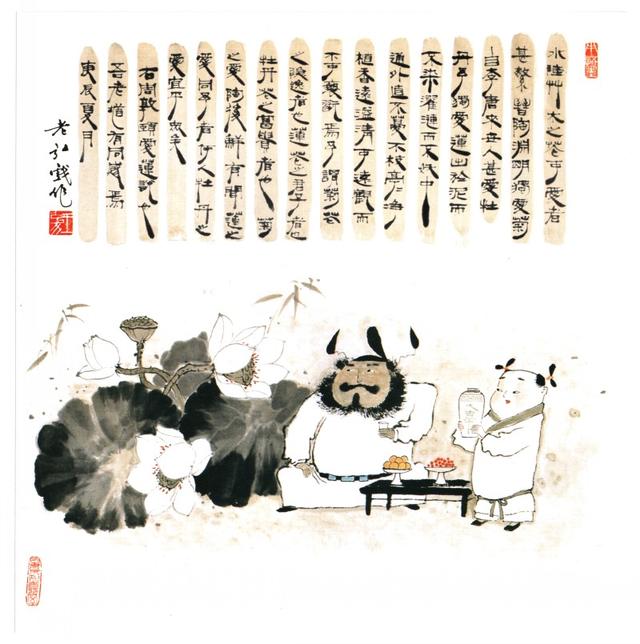 水陸艸木之花可愛者
甚蕃晉陶淵明獨愛菊
自李唐來世人甚愛牡
丹予獨愛蓮出於泥而
不染濯漣而不妖中
通外直不蔓不枝亭亭淨
植香遠溢清可遠觀而
不可褻玩焉予謂菊花
之隱逸者也蓮花之君子者也
牡丹花之富貴者也菊
之愛陶後鮮有聞蓮之
愛同予者何人牡丹之
愛宜乎眾矣
右周敦頤愛蓮說也
吾老 也有同 焉
庚辰夏月
老弘戲作